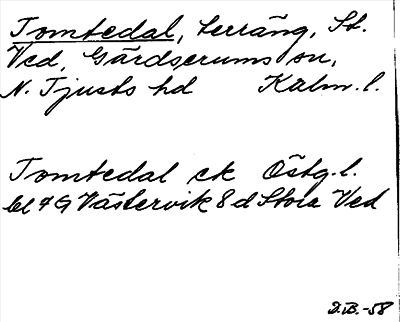 Tomtedal, terräng, St.
Ved, Gärdserums sn,
N. Tjusts hd Kalm. l.
Tomtedal ek Östg. l.
bl 7G Västervik 8 d Stora Ved
D.B.-58